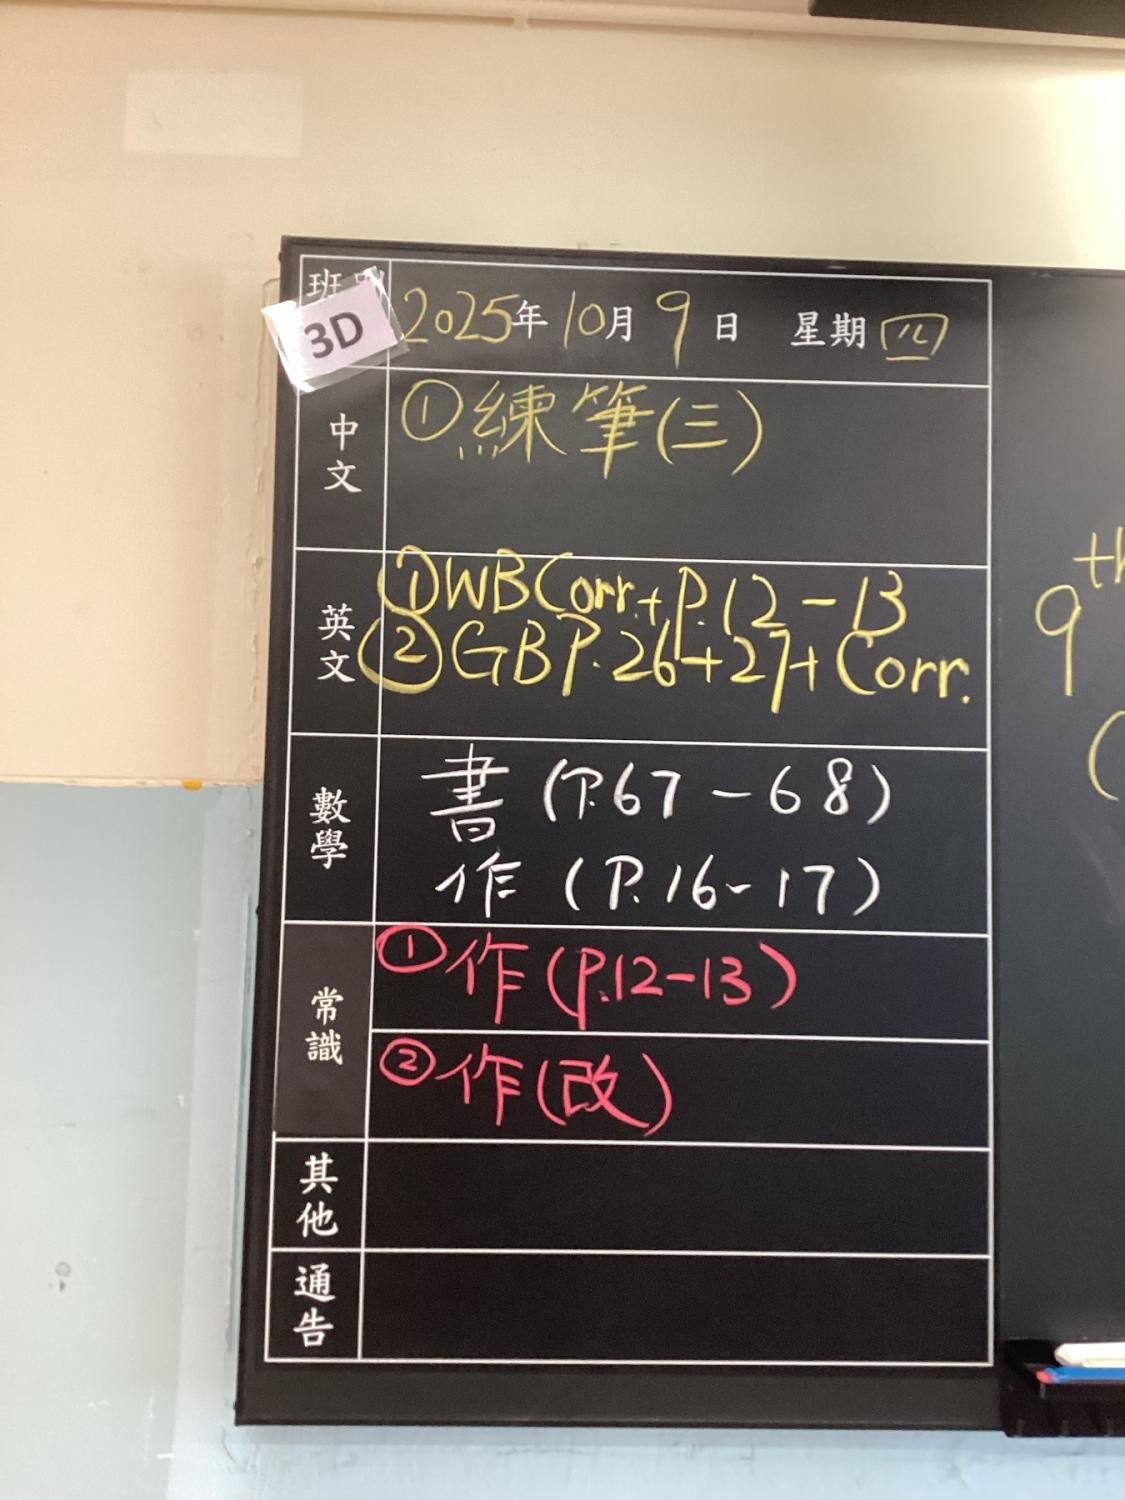 班別
3D
2025年10月9日 星期四
中文
①練筆(三)
英文
①WB Corr.+P.12-13
②GB P.26+27+Corr.
數學
書(P.67-68)
作(P.16-17)
常識
①作(P.12-13)
②作(改)
其他
通告
9th
(